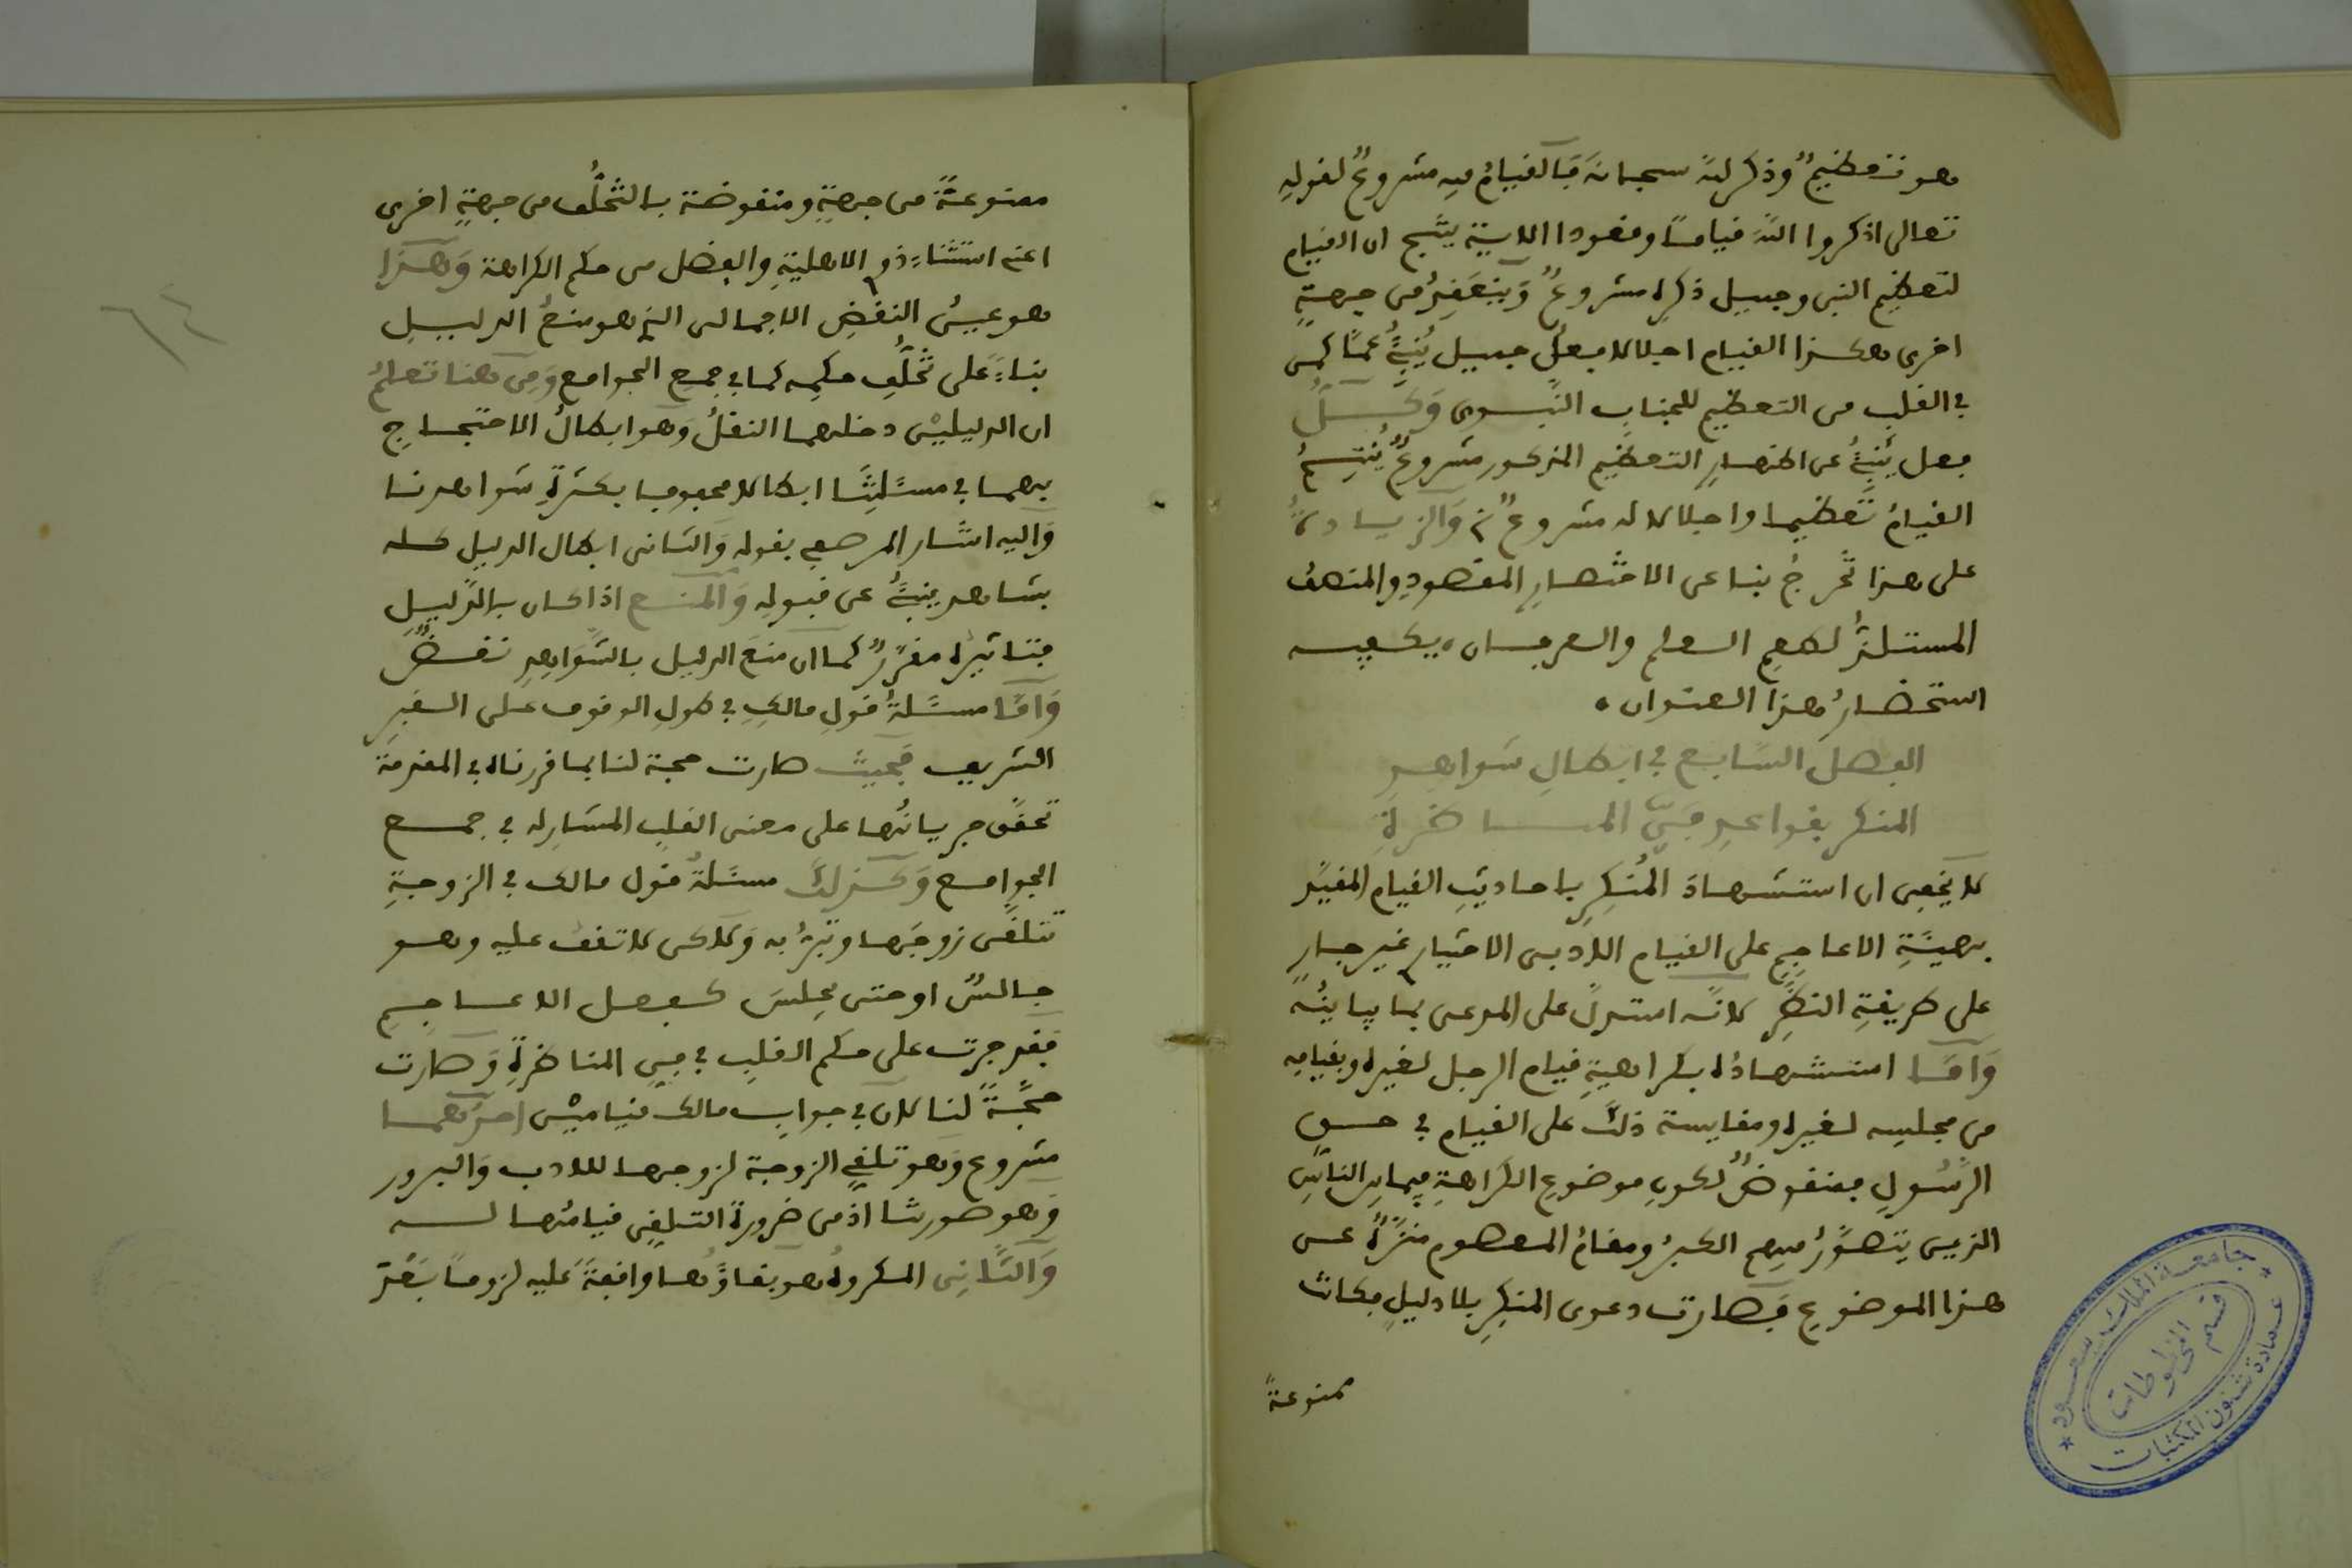 هو تعظيمٌ وذكر لله سبحانه فالقيام فيه مشروعٌ لقوله
تعالى اذكروا الله قياما وقعودا الاية ينتج ان القيام
لتعظيم النبي وجميل ذكره مشروعٌ وينعقد من جهةٍ
اخرى هكذا القيام اجلالا فعلٌ جميل ينبئ عما كمن
في القلب من التعظيم للجناب النبوى وكل
فعل ينبئ عن اظهار التعظيم المذكور مشروع ينتج
القيام تعظيما واجلالا له مشروع والزيادة
على هذا تخرج بنا عن الاختصار المقصود والمنصف
المستلذ لطعم العلم والعرفان، يكفيه
استحضار هذا العنوان،
الفصل السابع في ابطال شواهد
المنكر بقواعد فن المناظرة
لا يخفى ان استشهاد المنكر باحاديث القيام المقيد
بهيئة الاعاجم على القيام الادبى الاختيارى غير جار
على طريقة النظر لانه استدل على المدعى بما يباينه
واما استشهاده بكراهية قيام الرجل لغيره وبقيامه
من مجلسه لغيره ومقايسة ذلك على القيام في حق
الرسول فمنقوض لكون موضوع الكراهة فيما بين الناس
الذين يتصور فيهم الكبر ومقام المعصوم منزه عن
هذا الموضوع فصارت دعوى المنكر بلا دليل فكانت
ممنوعةً
ممنوعةً من جهةٍ ومنقوضة بالتخلُّف من جهةٍ اخرى
اعنى استثناء ذوى الاهلية والفضل من حكم الكراهة وهذا
هو عين النقض الاجمالى الذى هو منع الدليل
بناءً على تخلُّف حكمه كما في جمع الجوامع ومن هنا تعلم
ان الدليلين دخلهما النقل وهو ابطال الاحتجاج
بهما في مسئلتنا ابطالا محفوفا بكثرة شواهدنا
واليه اشار المرصفى بقوله والثانى ابطال الدليل كله
بشاهد ينبئ عن قبوله والمنع اذا كان بالدليل
فتاثيره مقرر كما ان منع الدليل بالشواهد نقض
واما مسئلة قول مالك في طول الوقوف على القبر
الشريف فحيث صارت حجة لنا بما قررناه في المقدمة
تحقق جريانها على معنى القلب المشار له في جمع
الجوامع وكذلك مسئلة قول مالك في الزوجة
تتلقى زوجها وتبرّ به ولكن لا تقف عليه وهو
جالس او حتى يجلس كفعل الاعاجم
فقد جرت على حكم القلب في فن المناظرة وصارت
حجةً لنا لان في جواب مالك قيامين احدهما
مشروع وهو تلقي الزوجة لزوجها للادب والبرور
وهو صورتنا اذ من ضرورة التلقي قيامها له
والثاني المكروه هو بقاؤها واقفةً عليه لزوما
جامعة الملك سعود
عمادة شئون المكتبات
قسم المخطوطات